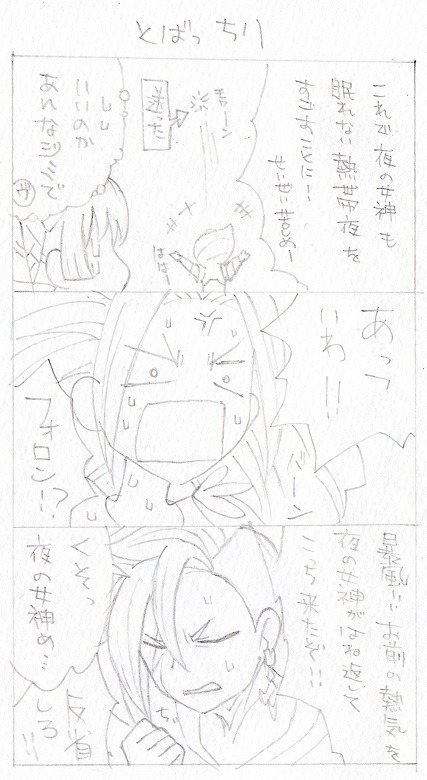 とばっちり
これで夜の女神も
眠れない熱帯夜を
すごすことに!
せいぜい苦しめー
モローン
送った
ははー
いいのか
あんなジミで
あっつ
いわ!!
バーン
フォロン!?
暴風!! お前の熱気を
夜の女神がはね返して
こっち来たぞ!!
くそっ
夜の女神め…
反省
しろ!!